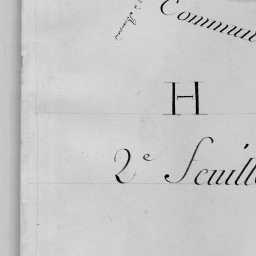 Commun
H
2e Feuill